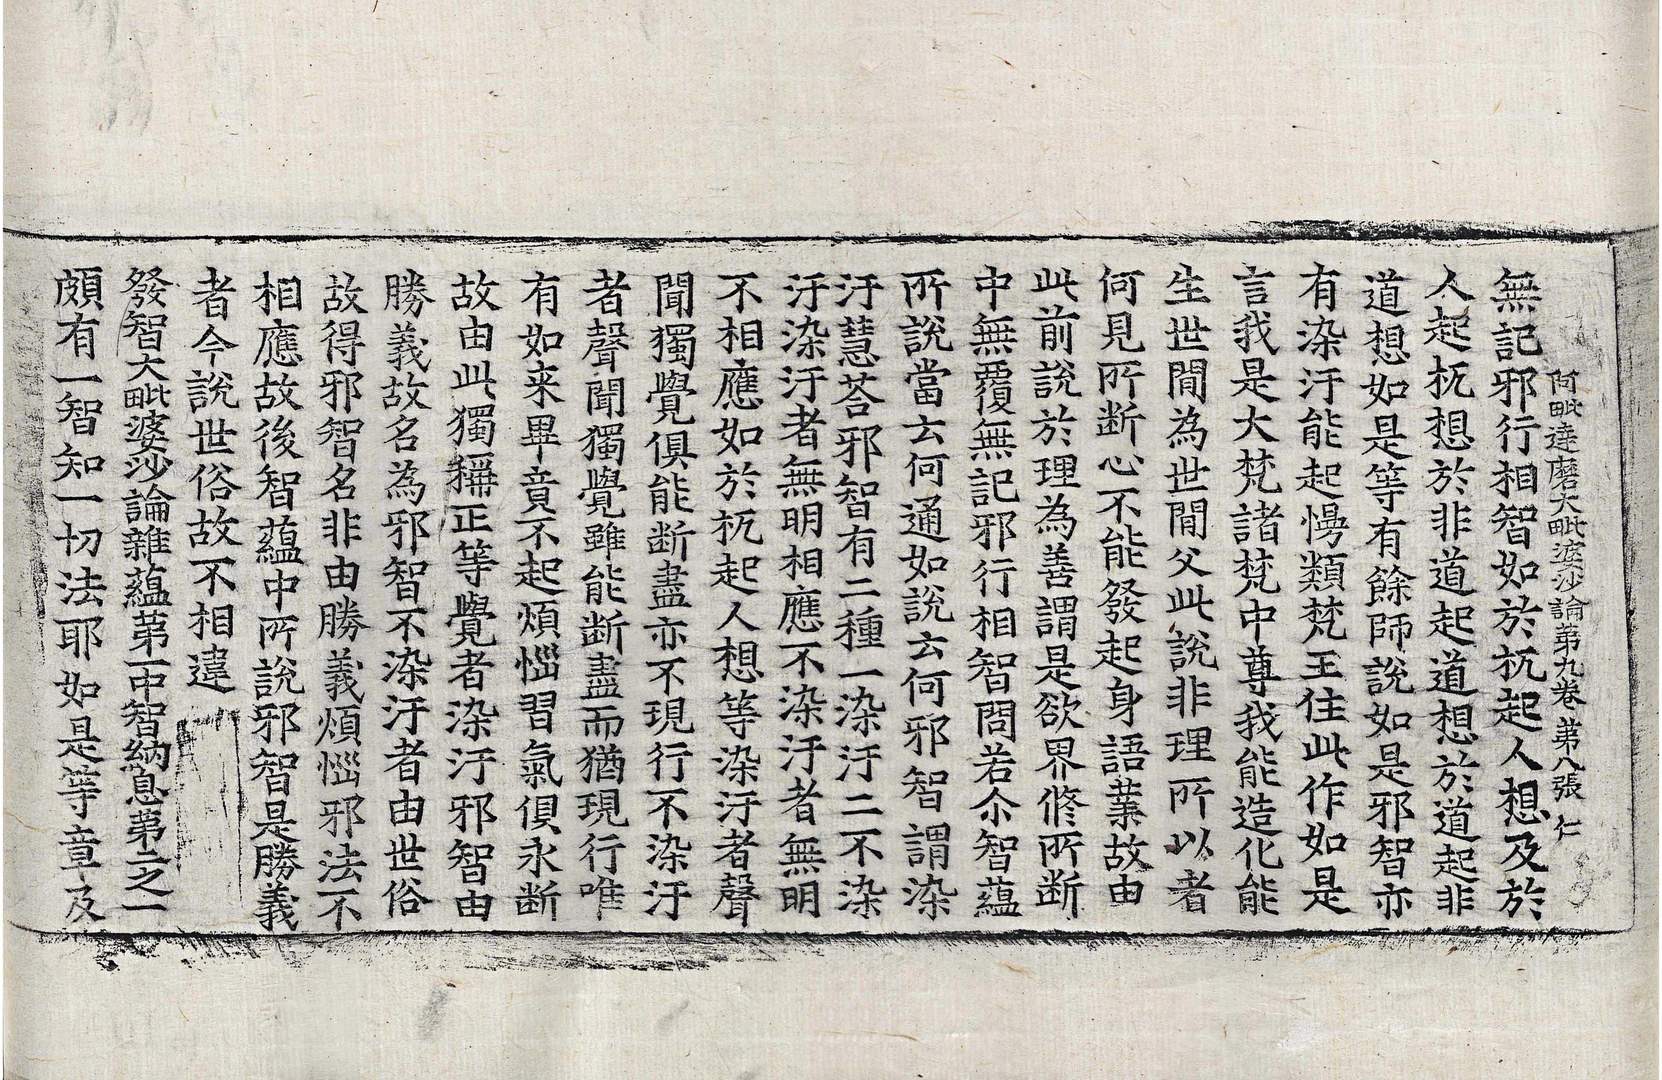 阿毗達磨大毗婆沙論第九卷 第八張 仁
無記邪行相智如於杌起人想及於
人起杌想於非道起道想於道起非
道想如是等有餘師說如是邪智亦
有染汙能起慢類梵王住此作如是
言我是大梵諸梵中尊我能造化能
生世間為世間父此說非理所以者
何見所断心不能發起身語業故由
此前說於理為善謂是欲界修所断
中無覆無記邪行相智問若尒智蘊
所說當云何通如說云何邪智謂染
汙慧荅邪智有二種一染汙二不染
汙染汙者無明相應不染汙者無明
不相應如於杌起人想等染汙者聲
聞獨覺俱能断盡亦不現行不染汙
者聲聞獨覺雖能断盡而猶現行唯
有如来畢竟不起煩惱習氣俱永断
故由此獨稱正等覺者染汙邪智由
勝義故名為邪智不染汙者由世俗
故得邪智名非由勝義煩惱邪法不
相應故後智蘊中所說邪智是勝義
者今說世俗故不相違
發智大毗婆沙論雜蘊第一中智納息第二之一
頗有一智知一切法耶如是等章及